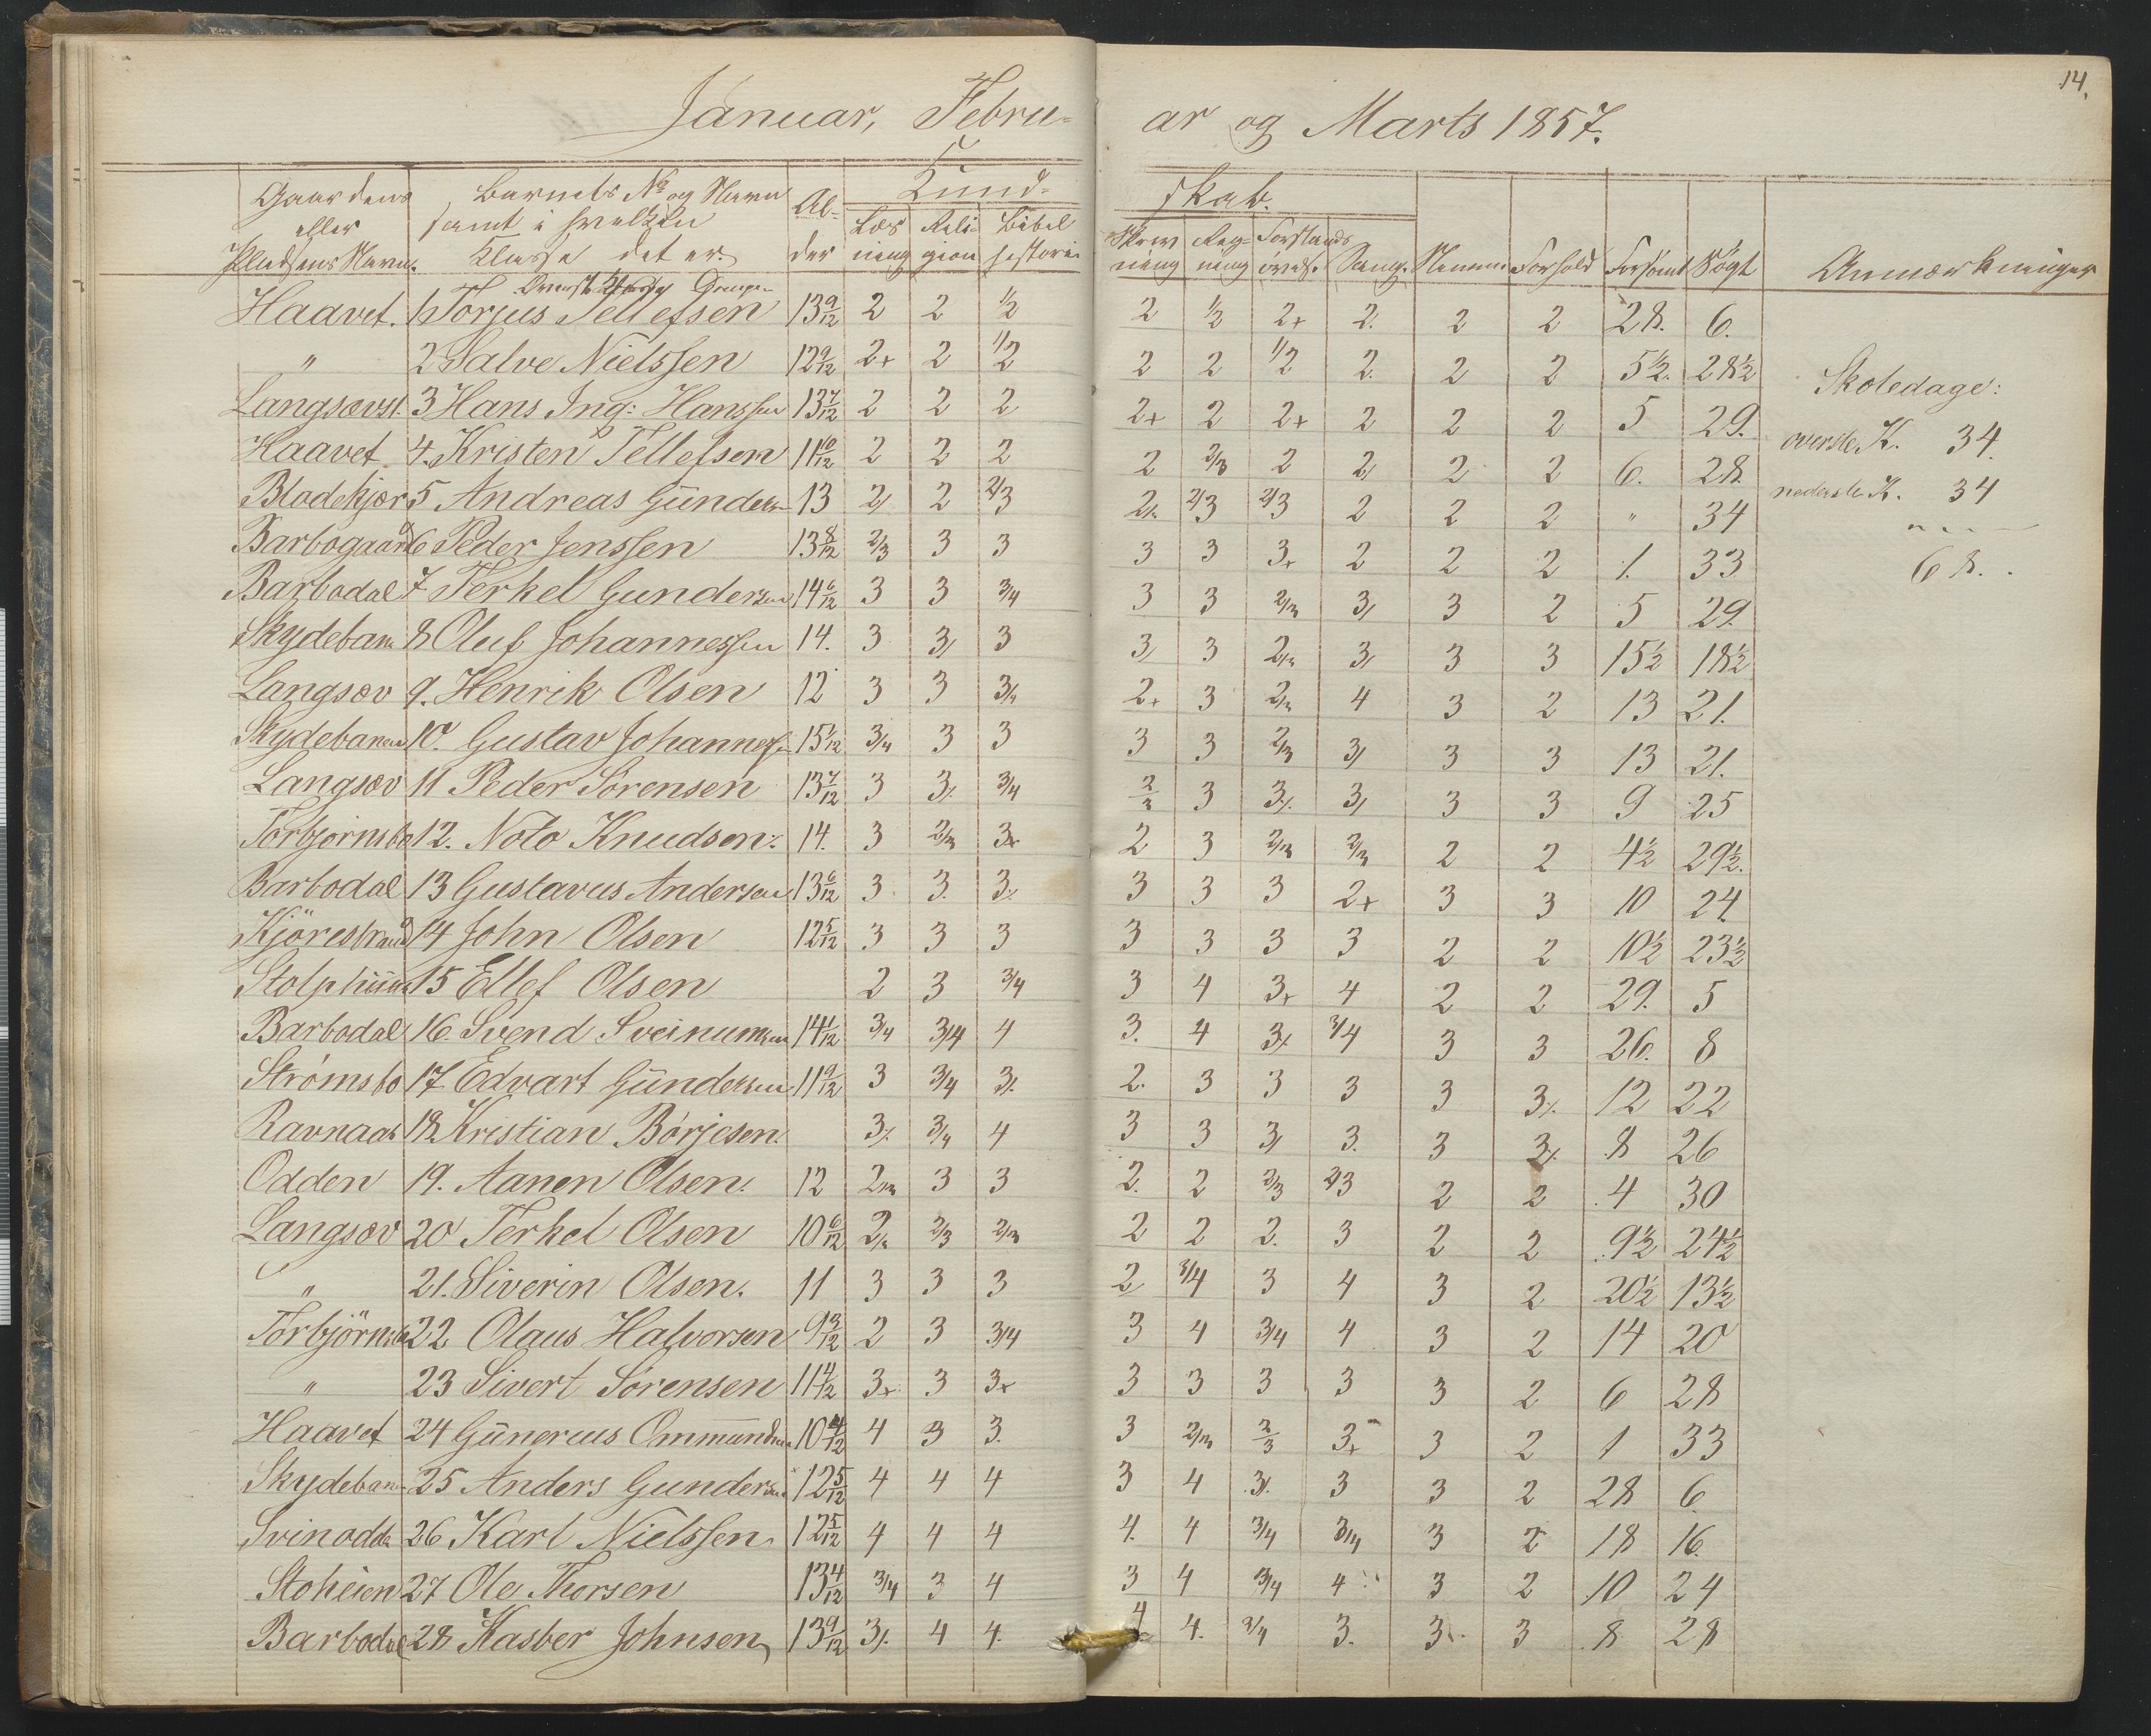 14.
Januar, Febru- ar og Marts 1857.
Kund- skab.
Gaardens eller Pladsens Navn. Barnets No og Navn samt i hvilken Klasse det er. Al- der Læs ning Reli- gion Bibel historie Skriv ning Reg- ning Forstands øvels. Sang. Nemme Forhold Forsömt Sögt Anmærkninger
Haavet. 1 Torjus Tellefsen 13 9/12 2 2 1/2 2 1/2 2+ 2. 2 2 28. 6.
" 2 Salve Nielssen 12 9/12 2+ 2 1/2 2 2 1/2 2. 2 2 5 1/2. 28 1/2
Skoledage:
Langsævst. 3 Hans Ing: Hanssen 13 7/12 2 2 2 2+ 2 2+ 2 2 2 5 29.
overste K. 34.
Haavet 4. Kristen Tellefsen 11 10/12 2 2 2 2 2/3 2 2/ 2 2 6. 28.
nederste K. 34
Blodekjær 5 Andreas Gündersen 13 2/ 2 2/3 2/. 2/3 2/3 2 2 2 " 34
Barbogaard 6 Peder Jenssen 13 8/12 2/3 3 3 3 3 3+ 2 2 2 1. 33
68.
Barbodal 7 Terkel Gundersen 14 6/12 3 3 3/4 3 3 2/3 3/ 3 2 5 29.
Skydebane 8 Oluf Johannessen 14. 3 3/ 3 3/ 3 2/3 3/ 3 3 15 1/2 18 1/2
Langsæv 9. Henrik Olsen 12 3 3 3/4 2+ 3 2/3 4 3 2 13 21.
Skydebanen 10. Gustav Johannessen 15 1/12 3/4 3 3 3 3 2/3 3/ 3 3 13 21.
Langsæv 11 Peder Sörensen 13 7/12 3 3/. 3/4 2/3 3 3/. 3/ 3 3 9 25
Torbjornsbo 12. Noto Knudsen. 14. 3 2/3 3+ 2 3 2/3 2/3 2 2 4 1/2 29 1/2.
Barbodal 13 Gustavus Andersen 13 6/12 3 3. 3/. 3 3 3 2+ 3 3 10 24
Kjörestrand 14 John Olsen 12 5/12 3 3 3 3 3 3 3 2 2 10 1/2 23 1/2
15 Ellef Olsen 2 3 3/4 3 4 3+ 4 2 2 29. 5
Barbodal 16. Svend Sveinumsen 14 11/12 3/4 3/4 4 3. 4 3/. 3/4 3 3 26. 8
Strömsbo 17 Edvart Gündersen 11 9/12 3 3/4 3/. 2. 3 3 3 3 3/. 12 22
Ravnaas 18 Kristian Börjesen. 3/. 3/4 4 3 3 3/ 3. 3 3/. 8 26
Odden 19. Aanen Olsen. 12 2/3 3 3 2. 2 2/3 2/3 2 2 4 30
Langsæv 20 Terkel Olsen 10 6/12 2/3 2/3 2/3 2 2 2. 3 2 2 9 1/2 24 1/2
" 21. Siverin Olsen. 11 3 3 3 2 3/4 3 4 3 2 20 1/2 13 1/2
Torbjörnsbo 22 Olaus Halvorsen 9 9/12 2 3 3/4 3 4 3/4 4 3 2 14 20
" 23 Sivert Sörensen 11 4/12 3+ 3 3+ 3 3 3 3 3 2 6 28
Haavet 24 Günerius Ommundsen 10 4/12 4 3 3. 3 2/3 2/3 3+ 3 2 1 33
Skydebane 25 Anders Gundersen 12 5/12 4 4 4 3 4 3/. 3 3 2 28 6
Svinodde 26 Karl Nielssen. 12 5/12 4 4 4 4. 4 3/4 3/4 3 2 18 16.
Stoheien 27 Ole Thorsen 13 4/12 3/4 3 4 3 4 3/4 4 3 2 10 24
Barbodal 28 Kasber Johnsen 13 9/12 3/. 4 4. 4 4. 3/4 3. 3. 3 8 28